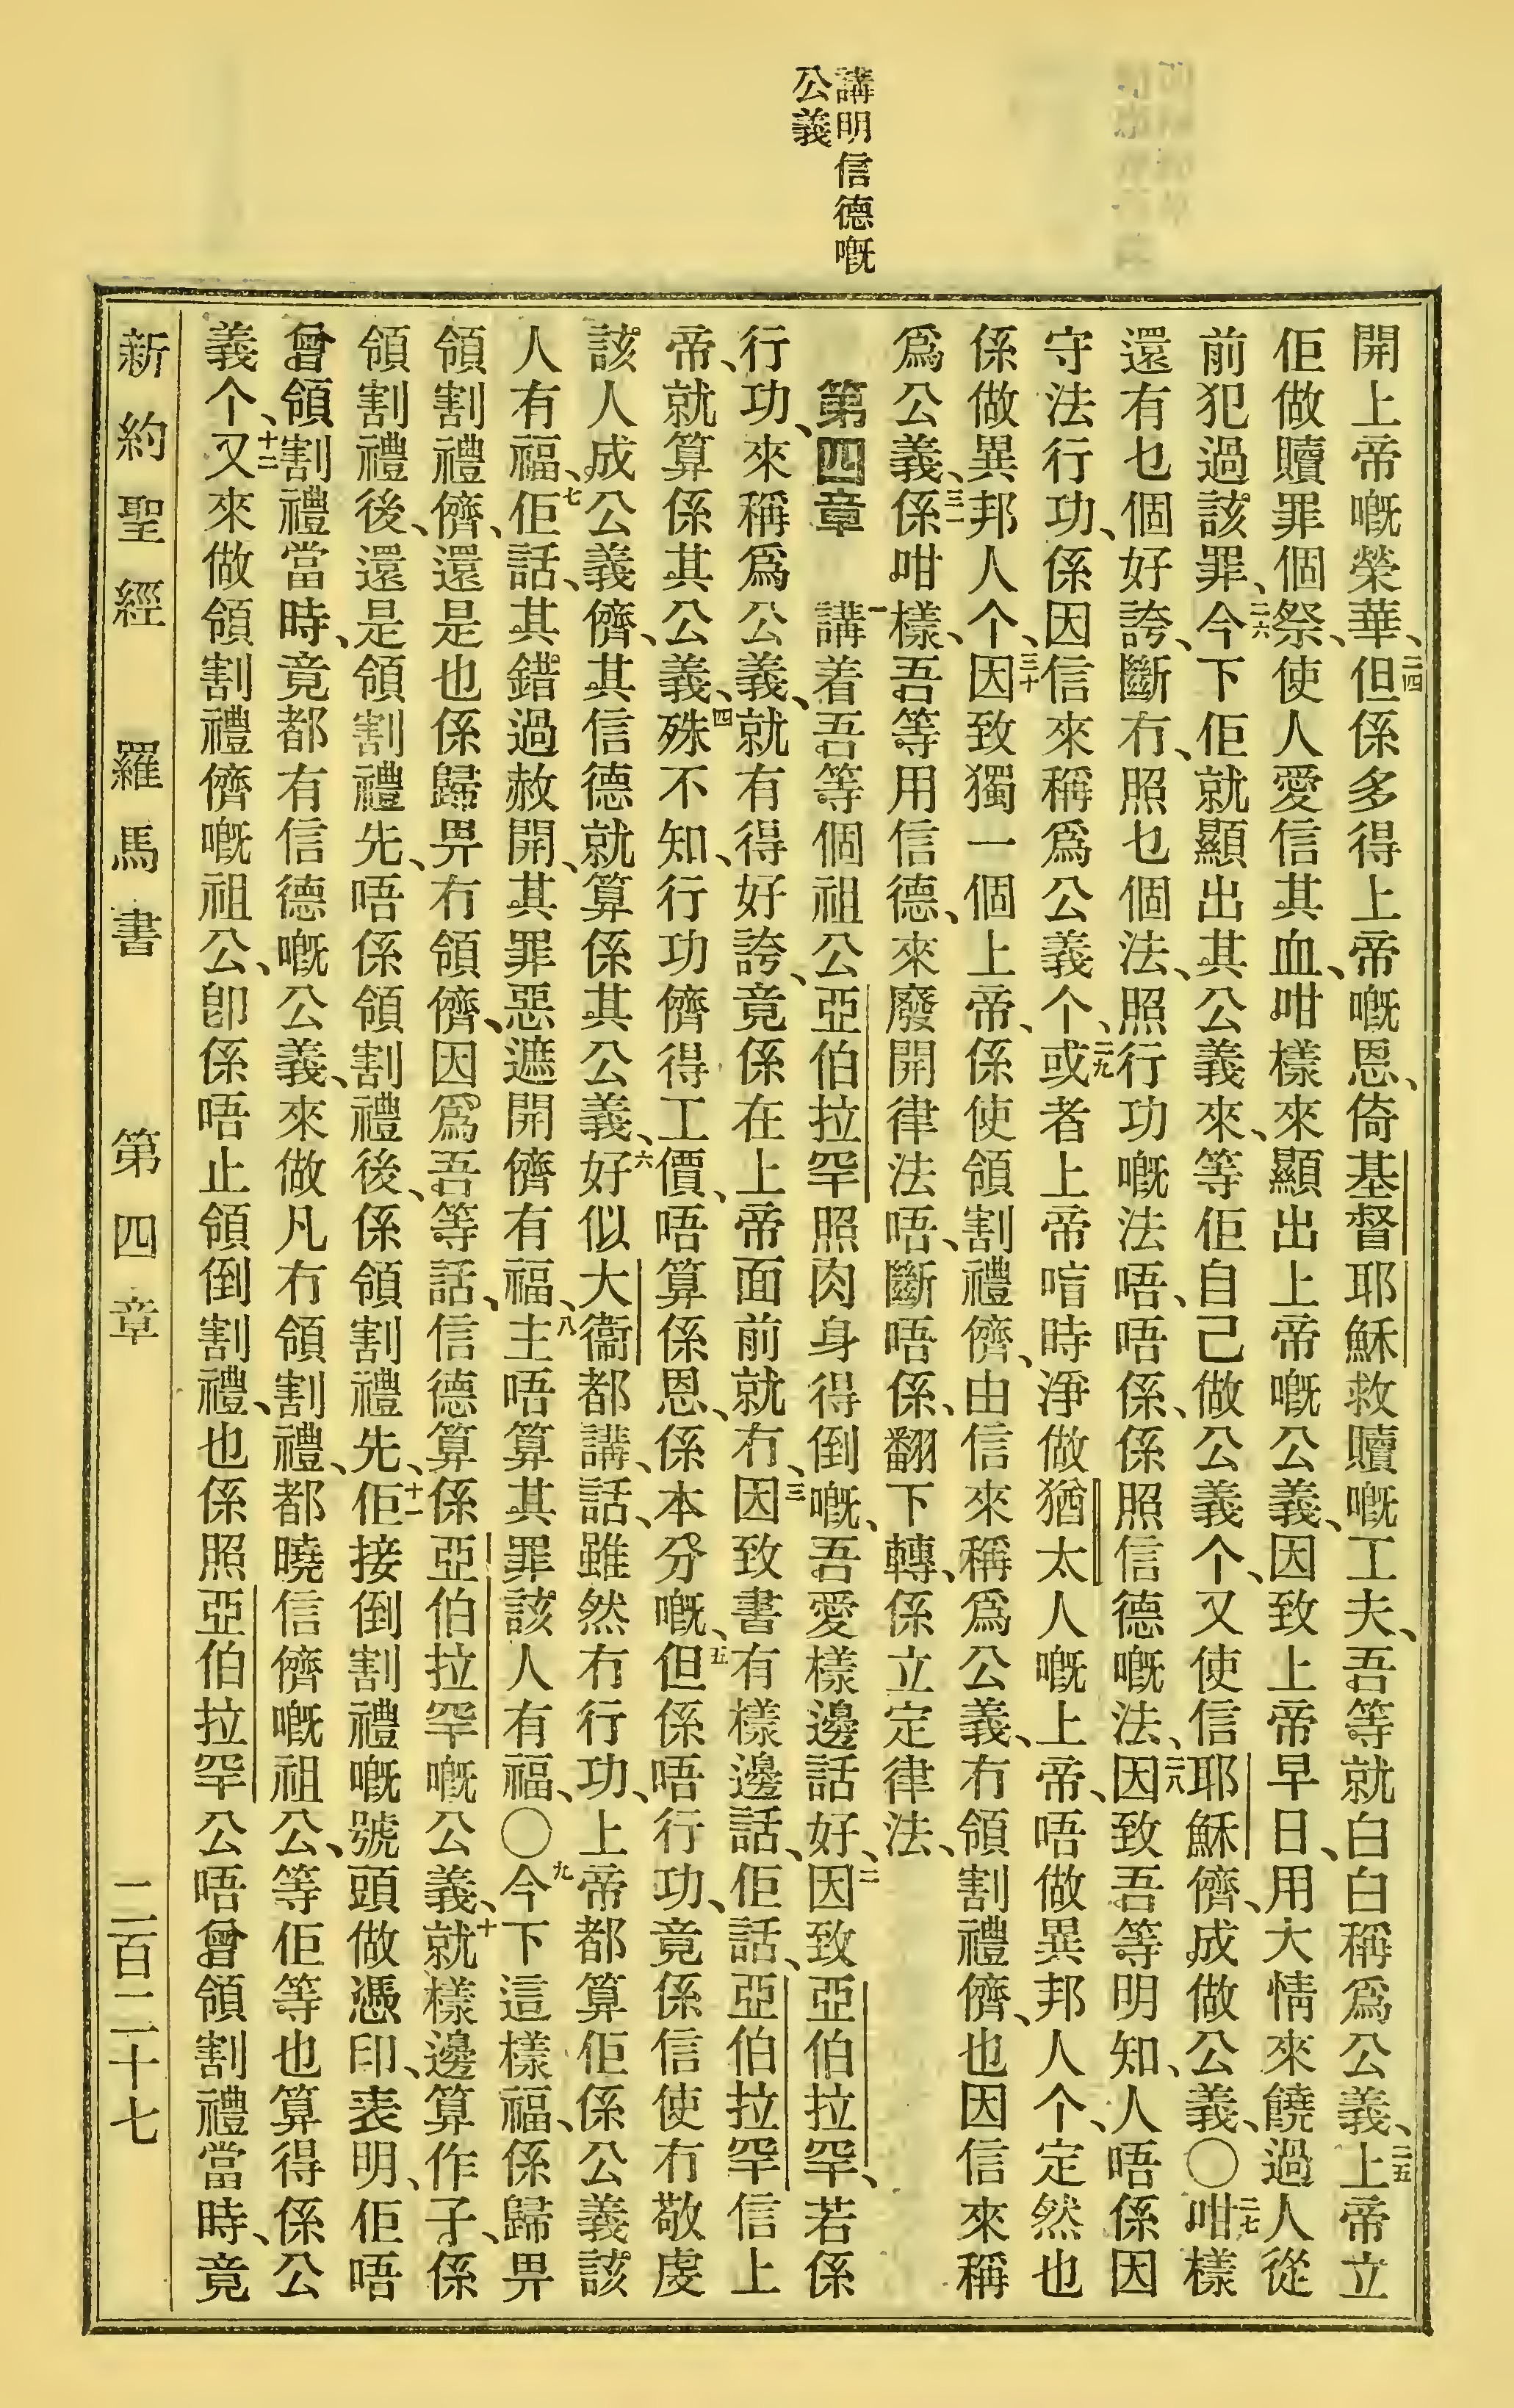 講明信德嘅
公義
開上帝嘅榮華、二四但係多得上帝嘅恩、倚基督耶穌救贖嘅工夫、吾等就白白稱爲公義、二五上帝立
佢做贖罪個祭、使人愛信其血、咁樣來顯出上帝嘅公義、因致上帝早日、用大情來饒過人從
前犯過該罪、二六今下佢就顯出其公義來、等佢自己做公義个、又使信耶穌儕、成做公義、〇二七咁樣
還有乜個好誇、斷冇、照乜個法、照行功嘅法唔、唔係、係照信德嘅法、二八因致吾等明知、人唔係因
守法行功、係因信來稱爲公義个、二九或者上帝啱時淨做猶太人嘅上帝、唔做異邦人个、定然也
係做異邦人个、三十因致獨一個上帝、係使領割禮儕、由信來稱爲公義、冇領割禮儕、也因信來稱
爲公義、三一係咁樣、吾等用信德、來廢開律法唔、斷唔係、翻下轉、係立定律法、
第四章 一講着吾等個祖公亞伯拉罕照肉身得倒嘅、吾愛樣邊話好、二因致亞伯拉罕、若係
行功、來稱爲公義、就有得好誇、竟係在上帝面前就冇、三因致書有樣邊話、佢話、亞伯拉罕信上
帝、就算係其公義、四殊不知、行功儕得工價、唔算係恩、係本分嘅、五但係唔行功、竟係信使冇敬虔
該人成公義儕、其信德就算係其公義、六好似大衞都講、話、雖然冇行功、上帝都算佢係公義該
人有福、七佢話、其錯過赦開、其罪惡遮開儕有福、八主唔算其罪該人有福、〇九今下這樣福、係歸畀
領割禮儕、還是也係歸畀冇領儕、因爲吾等話、信德算係亞伯拉罕嘅公義、十就樣邊算作子、係
領割禮後、還是領割禮先、唔係領割禮後、係領割禮先、十一佢接倒割禮嘅號頭做憑印、表明、佢唔
曾領割禮當時、竟都有信德嘅公義、來做凡冇領割禮、都曉信儕嘅祖公、等佢等也算得係公
義个、十二又來做領割禮儕嘅祖公、卽係唔止領倒割禮、也係照亞伯拉罕公唔曾領割禮當時、竟
新約聖經 羅馬書 第四章 二百二十七